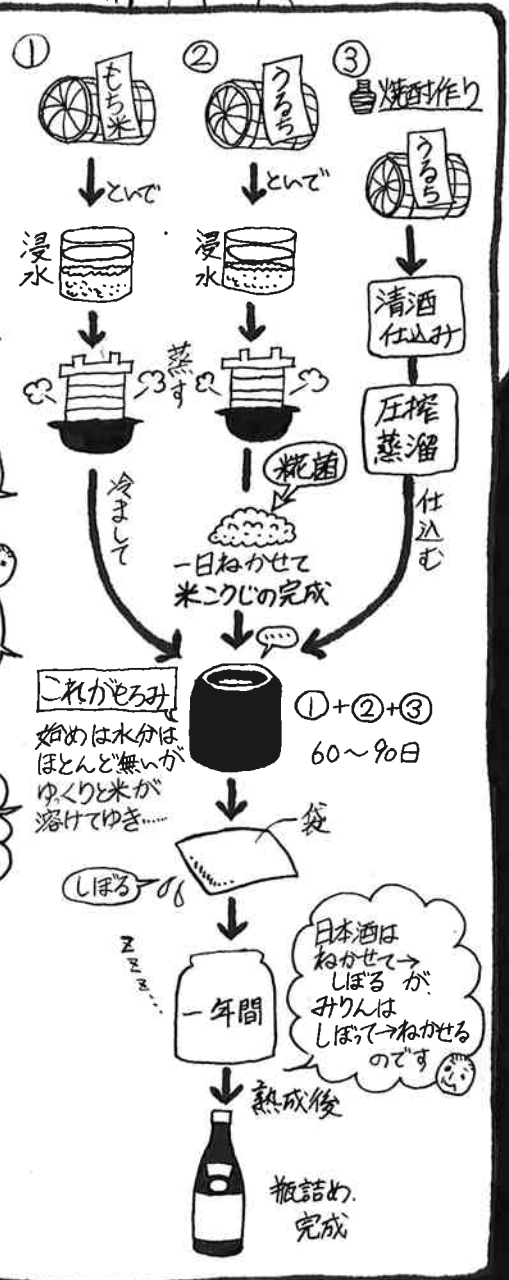 ①
もち米
といで
浸水
蒸す
冷まして
②
うるち
といで
浸水
糀菌
一日ねかせて
米こうじの完成
③
焼酎作り
うるち
清酒
仕込み
圧搾
蒸溜
仕込む
これがもろみ
始めは水分は
ほとんど無いが
ゆっくりと米が
溶けてゆき……
①+②+③
60〜90日
袋
しぼる
zzz…
一年間
日本酒は
ねかせて→
しぼる が、
みりんは
しぼって→ねかせる
のです
熟成後
瓶詰め.
完成